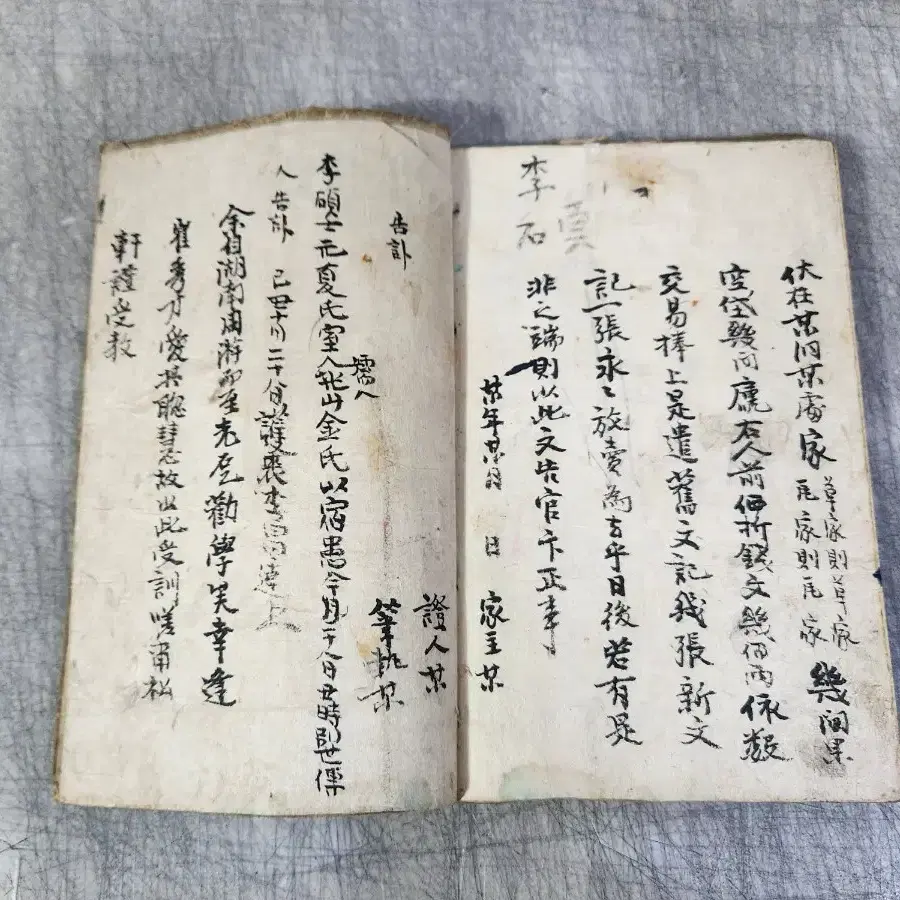 伏在某洞某處家草家則草家瓦家則瓦家幾間果
空垈幾間庫右人前価折錢文幾佰両依数
交易捧上是遣舊文記幾張新文
記一張永〻放賣為去乎日後若有是
非之端則以此文告官卞正事
某年某月 日 家主某
李石
證人某
筆執某
告訃
李碩士元夏氏室人孺人金氏以宿患今月二十八日丑時別世傳
人告訃 己四十月二十八日護喪李 上
余自湖南周游 至 勸學 幸逢
崔秀才愛其聰慧 故出此受訓 松
軒謹受教